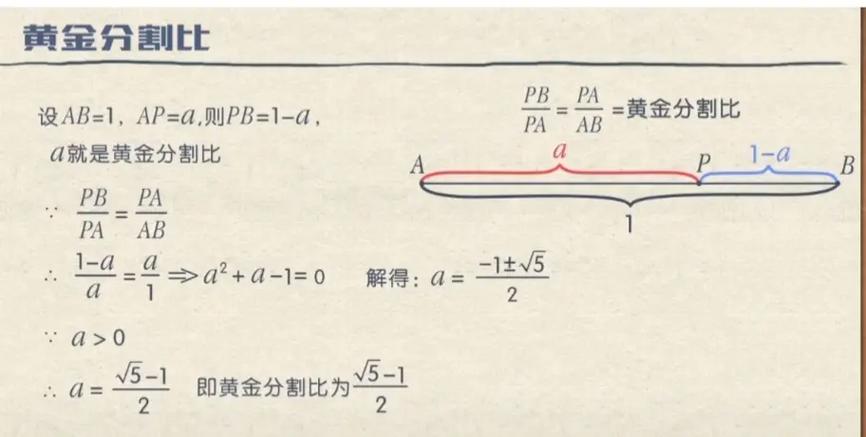 黄金分割比
设AB=1, AP=a,则PB=1-a,
a就是黄金分割比
PB/PA = PA/AB =黄金分割比
A a P 1-a B
1
∵ PB/PA = PA/AB
∴ (1-a)/a = a/1 ⇒ a²+a-1=0 解得: a = (-1±√5)/2
∵ a > 0
∴ a = (√5-1)/2 即黄金分割比为(√5-1)/2